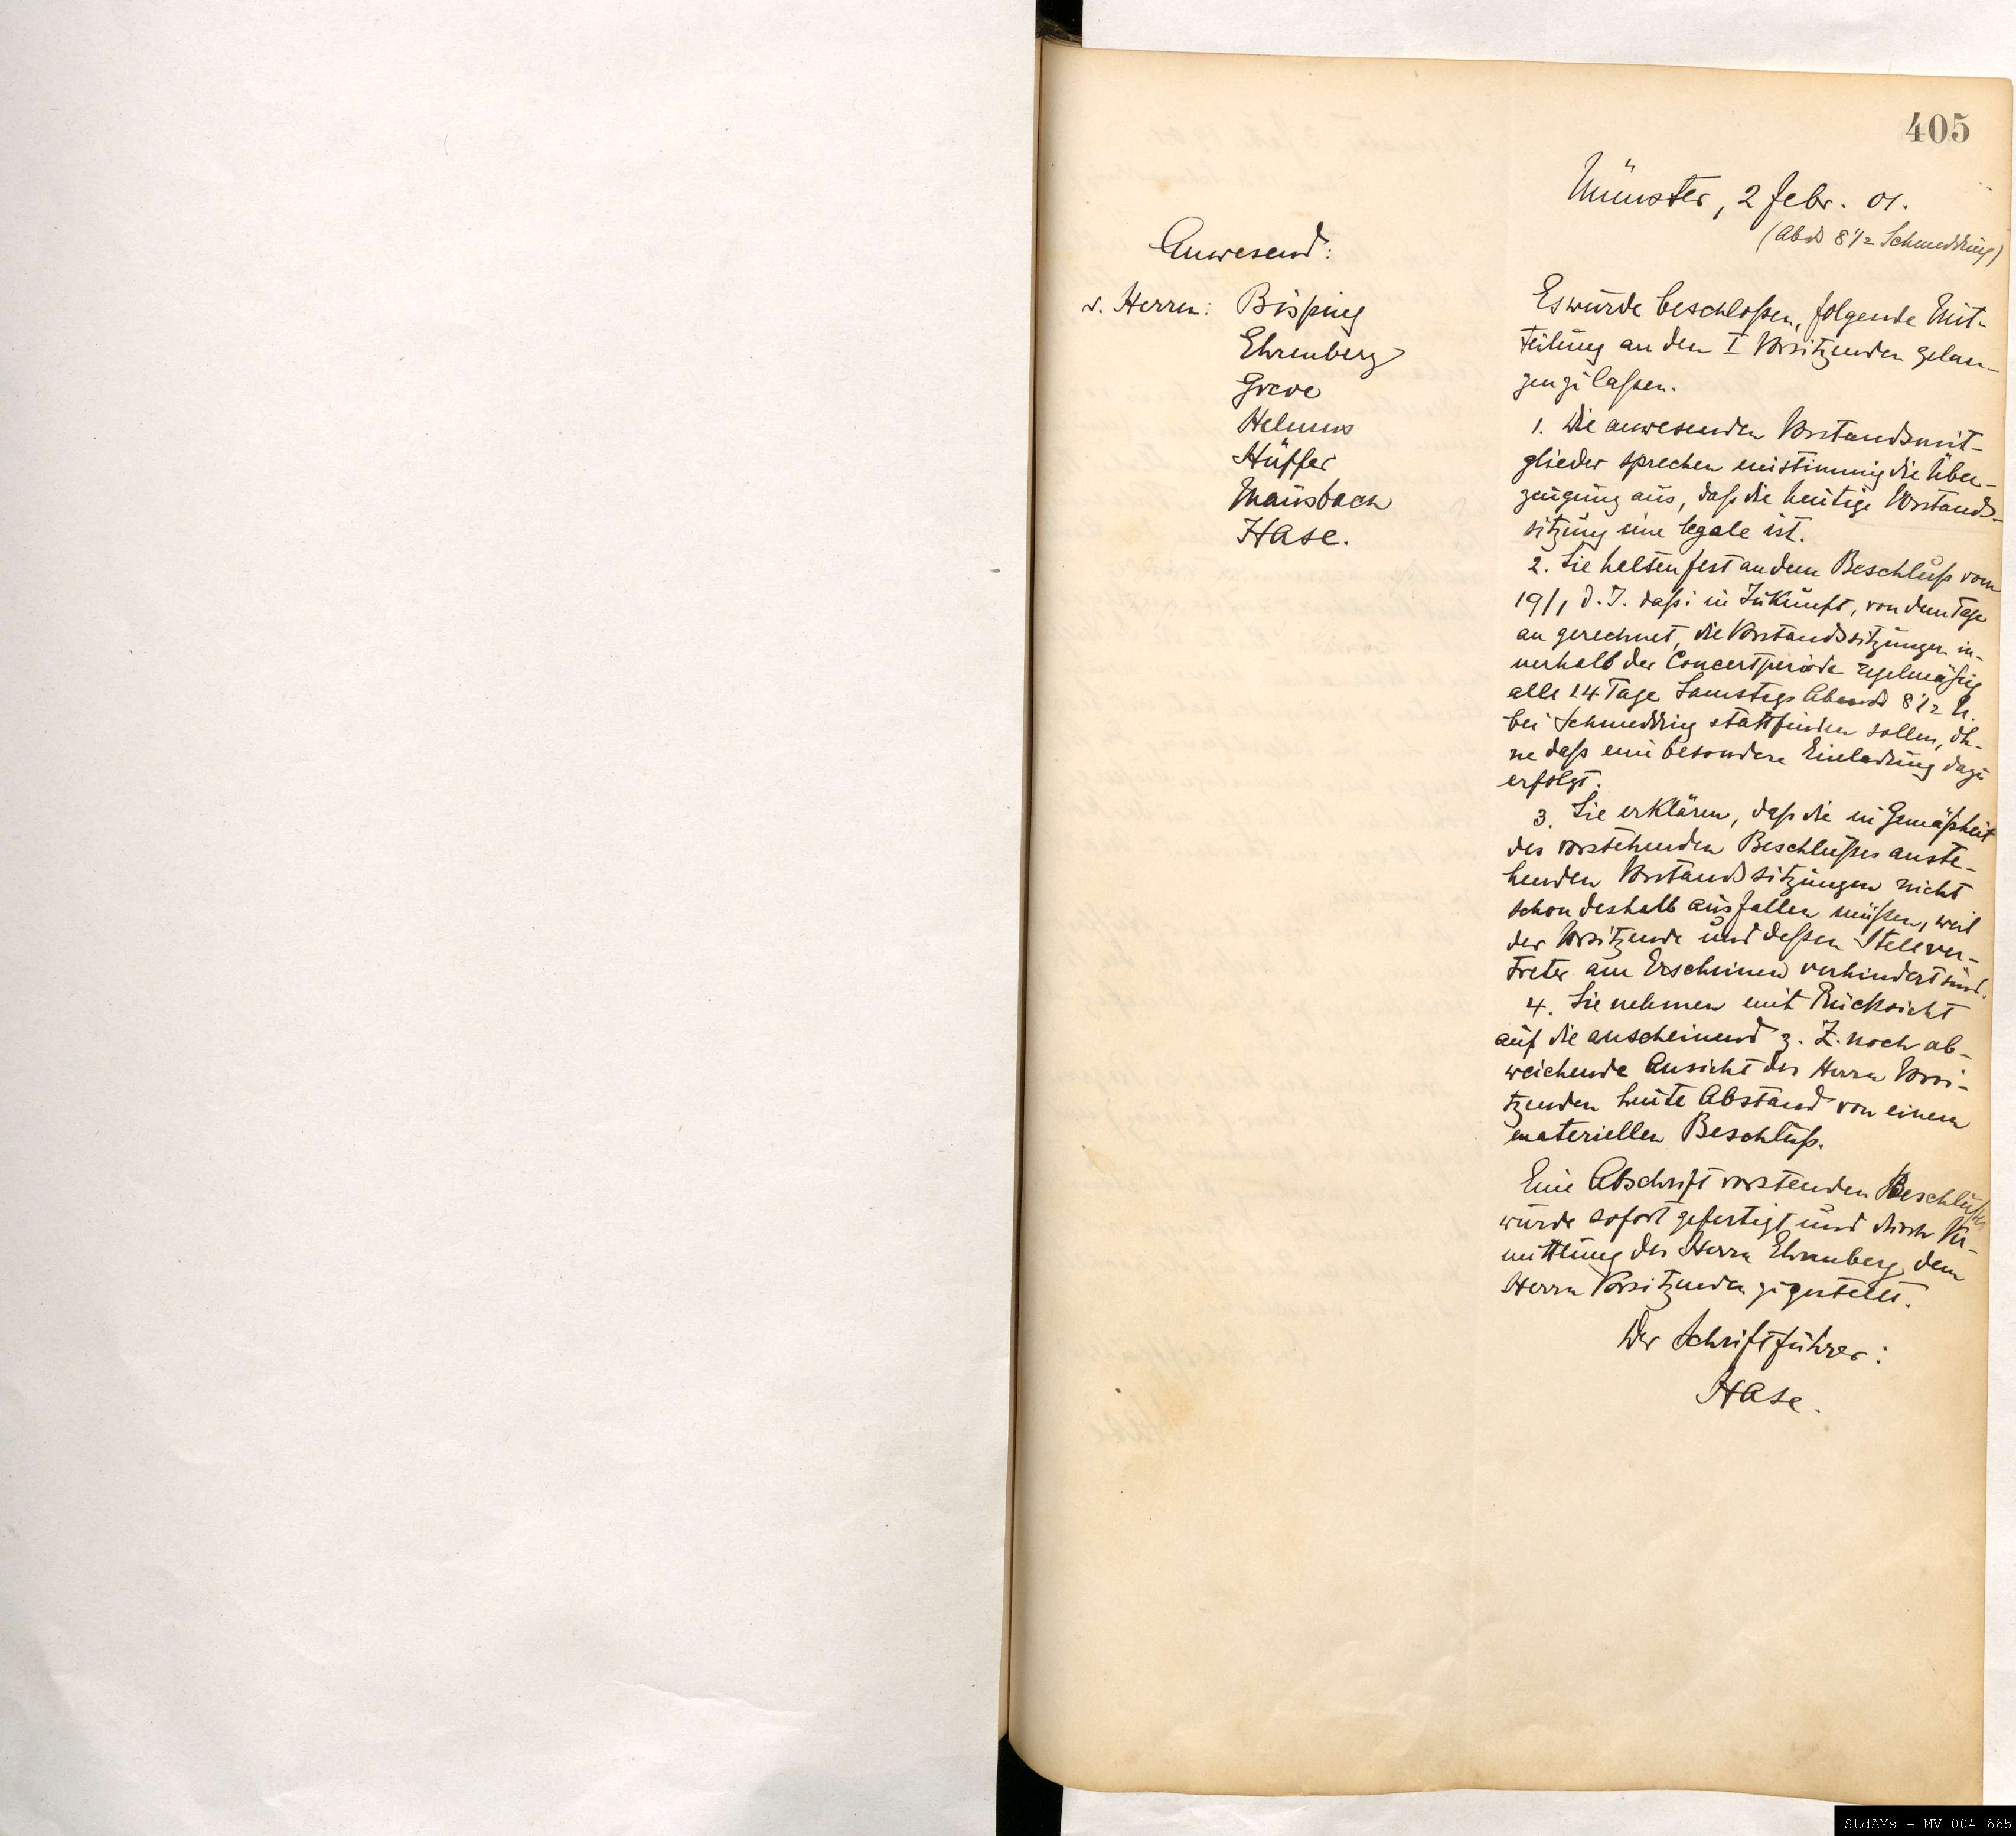 405
Münster, 2 Febr. 01.
(Abds 8 1/2 Schmedding)
Anwesend:
d. Herren: Bisping
Ehrenberg
Greve
Helmus
Hüffer
Mausbach
Hase.
Es wurde beschloßen, folgende Mit-
teilung an den I Vorsitzenden gelan-
gen zu laßen.
1. Die anwesenden Vorstandsmit-
glieder sprechen einstimmig die Über-
zeugung aus, daß die heutige Vorstands-
sitzung eine legale ist.
2. Sie halten fest an dem Beschluß vom
19/1 d. J. daß: in Zukunft, von dem Tage
an gerechnet, die Vorstandssitzungen in-
nerhalb der Concertperiode regelmäßig
alle 14 Tage Samstags Abends 8 1/2 U.
bei Schmedding stattfinden sollen, oh-
ne daß eine besondere Einladung dazu
erfolgt.
3. Sie erklären, daß die in Gemäßheit
des vorstehenden Beschlußes anste-
henden Vorstandssitzungen nicht
schon deshalb ausfallen müßen, weil
der Vorsitzende und deßen Stellver-
treter am Erscheinen verhindert sind.
4. Sie nehmen mit Rücksicht
auf die anscheinend z. Z. noch ab-
weichende Ansicht des Herrn Vorsi-
tzenden heute Abstand von einem
materiellen Beschluß.
Eine Abschrift vorstenden Beschlußes
wurde sofort gefertigt und durch Ver-
mittlung des Herrn Ehrenberg dem
Herrn Vorsitzenden zugestellt.
Der Schriftführer:
Hase.
StdAMs - MV_004_665